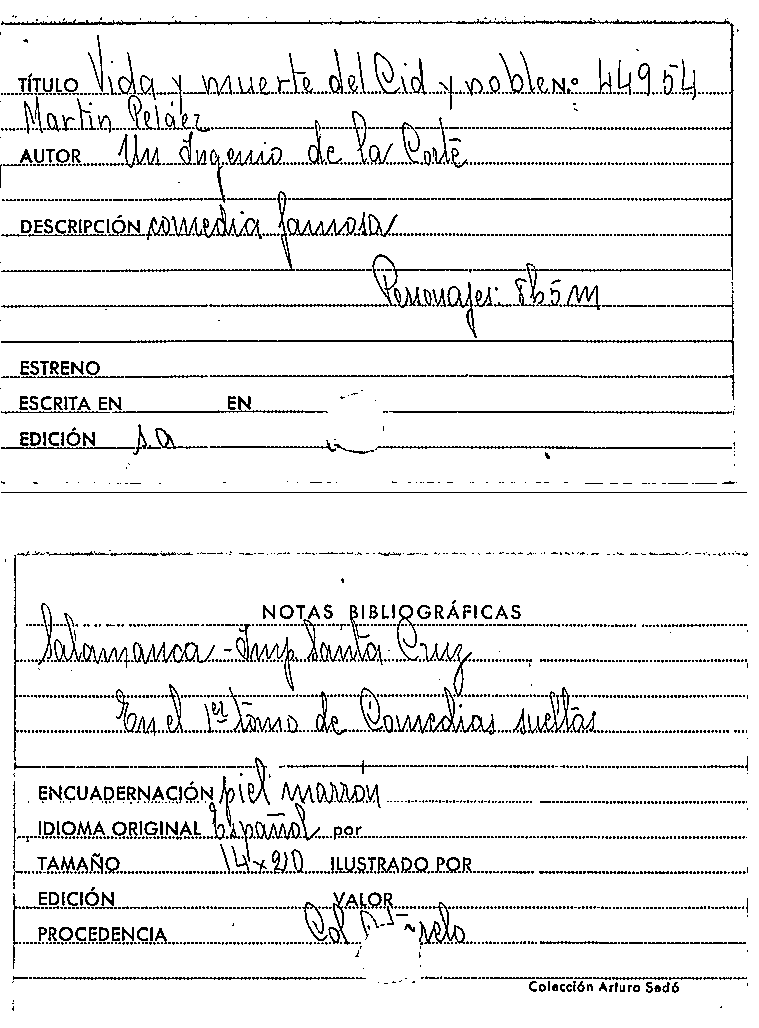 TÍTULO Vida y muerte del Cid y noble N.º 44954
Martin Peláez
AUTOR Un Ingenio de la Corte
DESCRIPCIÓN comedia famosa
Personajes: 8h 5m
ESTRENO
ESCRITA EN EN
EDICIÓN s.a
NOTAS BIBLIOGRÁFICAS
Salamanca - Imp Santa Cruz
En el 1er tomo de Comedias sueltas
ENCUADERNACIÓN piel marron
IDIOMA ORIGINAL Español por
TAMAÑO 14x20 ILUSTRADO POR
EDICIÓN VALOR
PROCEDENCIA Col
Colección Arturo Sedó